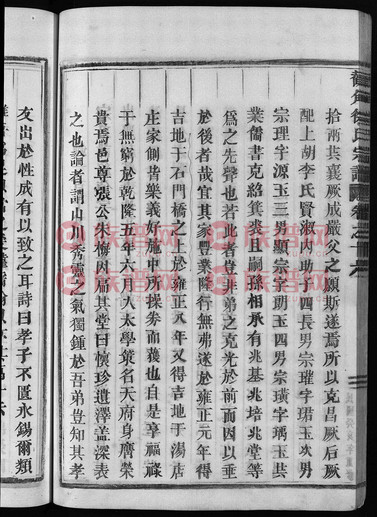 拾兩共襄厥成嚴父之願斯遂焉所以克昌厥后厥
配上胡李氏賢淑内助子四長男宗璀字珺玉次男
宗理字源玉三男顯宗字玥玉四男宗璜字瑀玉共
業儒書克紹箕裘且嗣孫相承有兆基兆培兆堂等
爲之先聲也若此者豈菲弟之克光於前而因以垂
於後者哉宜其家豐業隆行無弗遂於雍正元年得
吉地于石門橋之上於雍正八年又得吉地于湯店
庄家創皆樂義好施中所操券而獲也自是享福祿
于無窮於乾隆五十六年入太學葉名天府身膺榮
貴焉邑尊張公朱悔因扁其堂曰慎珍遺澤蓋深表
之也論者謂山川秀靈之氣獨鍾於吾弟豈知其孝
友出於性成有以致之耳詩曰孝子不匱永錫爾類